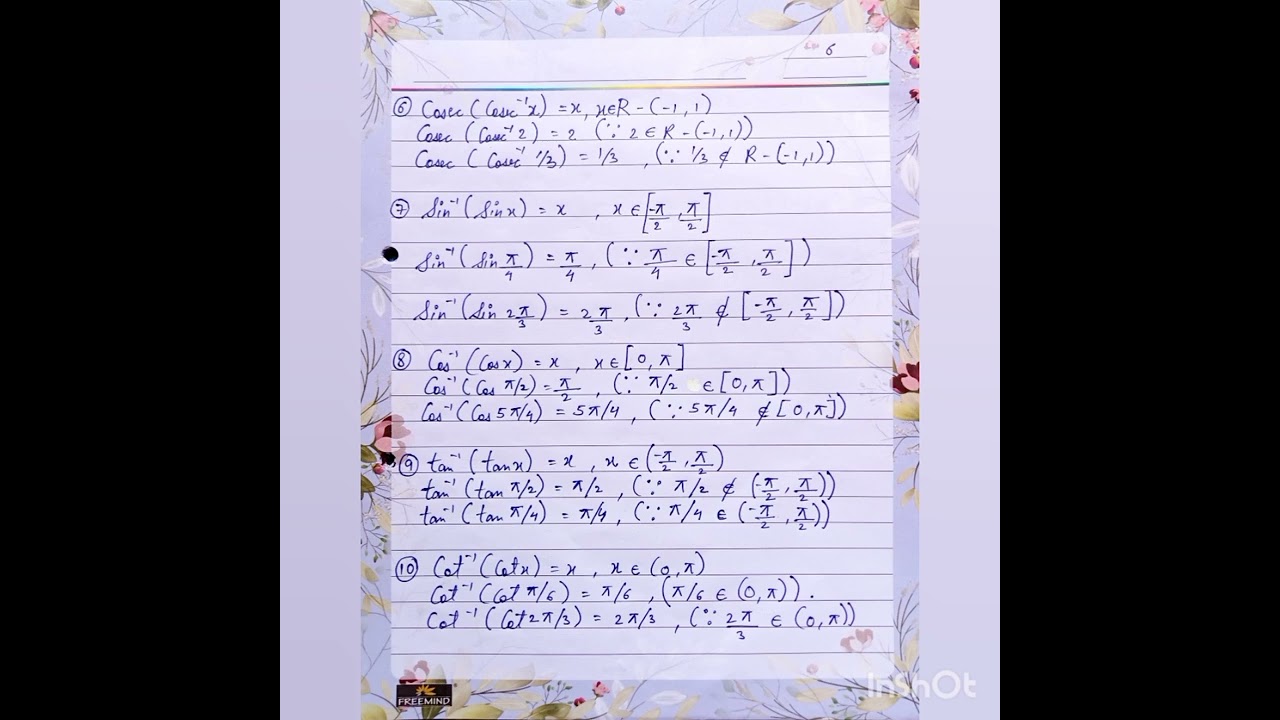 6
⑥ Cosec (Cosec⁻¹x) = x, x∈R - (-1, 1)
Cosec (Cosec⁻¹ 2) = 2 (∵ 2 ∈ R - (-1, 1))
Cosec (Cosec⁻¹ 1/3) = 1/3 , (∵ 1/3 ∉ R - (-1, 1))
⑦ Sin⁻¹ (Sin x) = x , x ∈ [-π/2 , π/2]
Sin⁻¹ (Sin π/4) = π/4 , (∵ π/4 ∈ [-π/2 , π/2])
Sin⁻¹ (Sin 2π/3) = 2π/3 , (∵ 2π/3 ∉ [-π/2 , π/2])
⑧ Cos⁻¹ (Cos x) = x , x ∈ [0, π]
Cos⁻¹ (Cos π/2) = π/2 , (∵ π/2 ∈ [0, π])
Cos⁻¹ (Cos 5π/4) = 5π/4 , (∵ 5π/4 ∉ [0, π])
⑨ tan⁻¹ (tan x) = x , x ∈ (-π/2 , π/2)
tan⁻¹ (tan π/2) = π/2 , (∵ π/2 ∉ (-π/2 , π/2))
tan⁻¹ (tan π/4) = π/4 , (∵ π/4 ∈ (-π/2 , π/2))
⑩ Cot⁻¹ (Cot x) = x , x ∈ (0, π)
Cot⁻¹ (Cot π/6) = π/6 , (π/6 ∈ (0, π)) .
Cot⁻¹ (Cot 2π/3) = 2π/3 , (∵ 2π/3 ∈ (0, π))
FREEMIND
InShOt